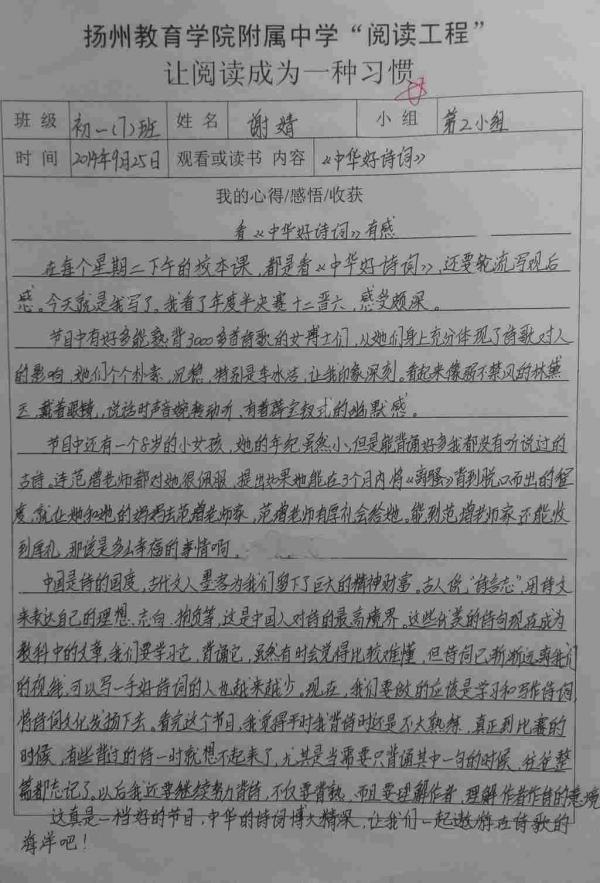 扬州教育学院附属中学“阅读工程”
让阅读成为一种习惯
班 级 初一(7)班 姓 名 谢婧 小 组 第2小组
时 间 2014年9月25日 观看或读书 内容 《中华好诗词》
我的心得/感悟/收获
看《中华好诗词》有感
在每个星期二下午的校本课，都是看《中华好诗词》，还要轮流写观后
感。今天就是我写了。我看了年度半决赛十二晋六，感受颇深。
节目中有好多能熟背3000多首诗歌的女博士们，从她们身上充分体现了诗歌对人
的影响，她们个个朴素、沉稳，特别是李水洁，让我印象深刻。看起来像弱不禁风的林黛
玉，戴着眼镜，说话时声音婉转动听，有着薛宝钗式的幽默感。
节目中还有一个8岁的小女孩，她的年纪虽然小，但是能背诵好多我都没有听说过的
古诗。连范增老师都对她很佩服，提出如果她能在3个月内将《离骚》背到脱口而出的程
度，就让她和她的妈妈去范增老师家，范增老师有厚礼会给她。能到范增老师家还能收
到厚礼，那该是多么幸福的事情啊。
中国是诗的国度，古代文人墨客为我们留下了巨大的精神财富。古人说，“诗言志”，用诗文
来表达自己的理想、志向、抱负等，这是中国人对诗的最高境界。这些优美的诗句现在成为
教科中的文章，我们要学习它，背诵它，虽然有时会觉得比较难懂，但诗词已渐渐远离我们
的视线，可以写一手好诗词的人也越来越少。现在，我们要做的应该是学习和写作诗词，
将诗词文化发扬下去。看完这个节目，我觉得平时我背诗时还是不大熟练，真正到比赛的
时候，有些背过的诗一时就想不起来了，尤其是当需要只背诵其中一句的时候，往往整
篇都忘记了。以后我还要继续努力背诗，不仅要背熟，而且要理解作者，理解作者作诗的意境
这真是一档好的节目，中华的诗词博大精深，让我们一起遨游在诗歌的
海洋吧！